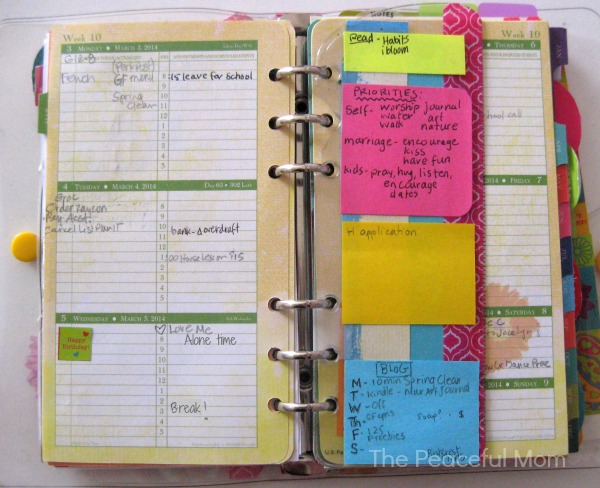 Week 10
3 MONDAY • MARCH 3, 2014
French
GF menu
Spring
Clean
15 leave for School
4 TUESDAY • MARCH 4, 2014
DAY 63 • 302 LEFT
Order
Cancel List Plan It
bank - overdraft
Horse lesson $15
5 WEDNESDAY • MARCH 5, 2014
Ash Wednesday
Happy
Birthday!
Love Me
Alone time
Break!
Read - Habits
ibloom
PRIORITIES:
Self - worship journal
water art
walk nature
marriage - encourage
kiss
have fun
kids - pray, hug, listen,
encourage
dates
application
BLOG
M - 10 min Spring Clean
T - Kindle - Natur Art Journal
W - Off
Th -
F - 125
Freebies
S -
Soap? - $
Pinterest
Week 10
THURSDAY 6
school call
FRIDAY 7
SATURDAY 8
Jocelyn
Dance Prac
2014 • SUNDAY 9
The Peaceful Mom